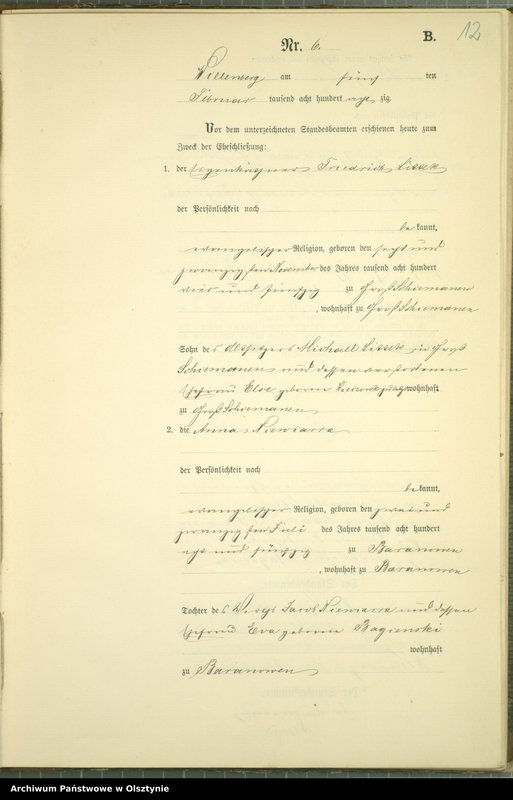 12
B.
Nr. 6.
Willenberg am fünf ten
Februar tausend acht hundert acht zig
Vor dem unterzeichneten Standesbeamten erschienen heute zum
Zweck der Eheschließung:
1. der Eigenkäthner Friedrich Lissek
der Persönlichkeit nach
be kannt,
evangelischer Religion, geboren den sechs und
zwanzigsten November des Jahres tausend acht hundert
vier und fünfzig zu Groß Schiemanen
, wohnhaft zu Groß Schiemanen
Sohn des Altsitzers Michael Lissek in Groß
Schiemanen und dessen verstorbenen
Ehefrau Eva geborene wohnhaft
zu Groß Schiemanen
2. die Anna Niewiarra
der Persönlichkeit nach
be kannt,
evangelischer Religion, geboren den zwei und
zwanzigsten Juli des Jahres tausend acht hundert
acht und fünfzig zu Baranowen
, wohnhaft zu Baranowen
Tochter des Wirths Jacob Niewiarra und dessen
Ehefrau Eva geborene Bagienski
wohnhaft
zu Baranowen
Archiwum Państwowe w Olsztynie